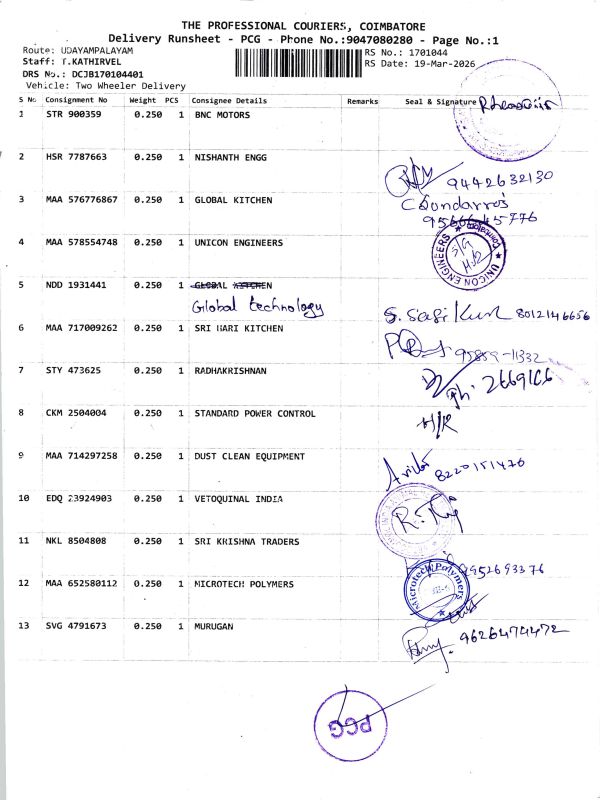 THE PROFESSIONAL COURIERS, COIMBATORE
Delivery Runsheet - PCG - Phone No.:9047080280 - Page No.:1
Route: UDAYAMPALAYAM
RS No.: 1701044
Staff: T.KATHIRVEL
RS Date: 19-Mar-2026
DRS No.: DCJB170104401
Vehicle: Two Wheeler Delivery
S No Consignment No Weight PCS Consignee Details Remarks Seal & Signature
1 STR 900359 0.250 1 BNC MOTORS
2 HSR 7787663 0.250 1 NISHANTH ENGG
9442632130
3 MAA 576776867 0.250 1 GLOBAL KITCHEN
4 MAA 578554748 0.250 1 UNICON ENGINEERS
UNICON ENGINEERS
5 NDD 1931441 0.250 1 GLOBAL KITCHEN
Global technology
8012146656
6 MAA 717009262 0.250 1 SRI HARI KITCHEN
7 STY 473625 0.250 1 RADHAKRISHNAN
ph: 2669166
8 CKM 2504004 0.250 1 STANDARD POWER CONTROL
H/R
9 MAA 714297258 0.250 1 DUST CLEAN EQUIPMENT
8220151476
10 EDQ 23924903 0.250 1 VETOQUINAL INDIA
11 NKL 8504808 0.250 1 SRI KRISHNA TRADERS
9952693376
12 MAA 652580112 0.250 1 MICROTECH POLYMERS
Microtech Polymers
13 SVG 4791673 0.250 1 MURUGAN
9626474472
PCG